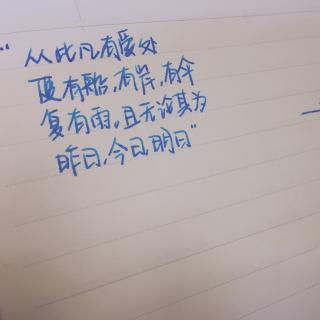 “从此凡有爱处
更有船,有岸,有伞
复有雨。且无论其为
昨日,今日,明日”